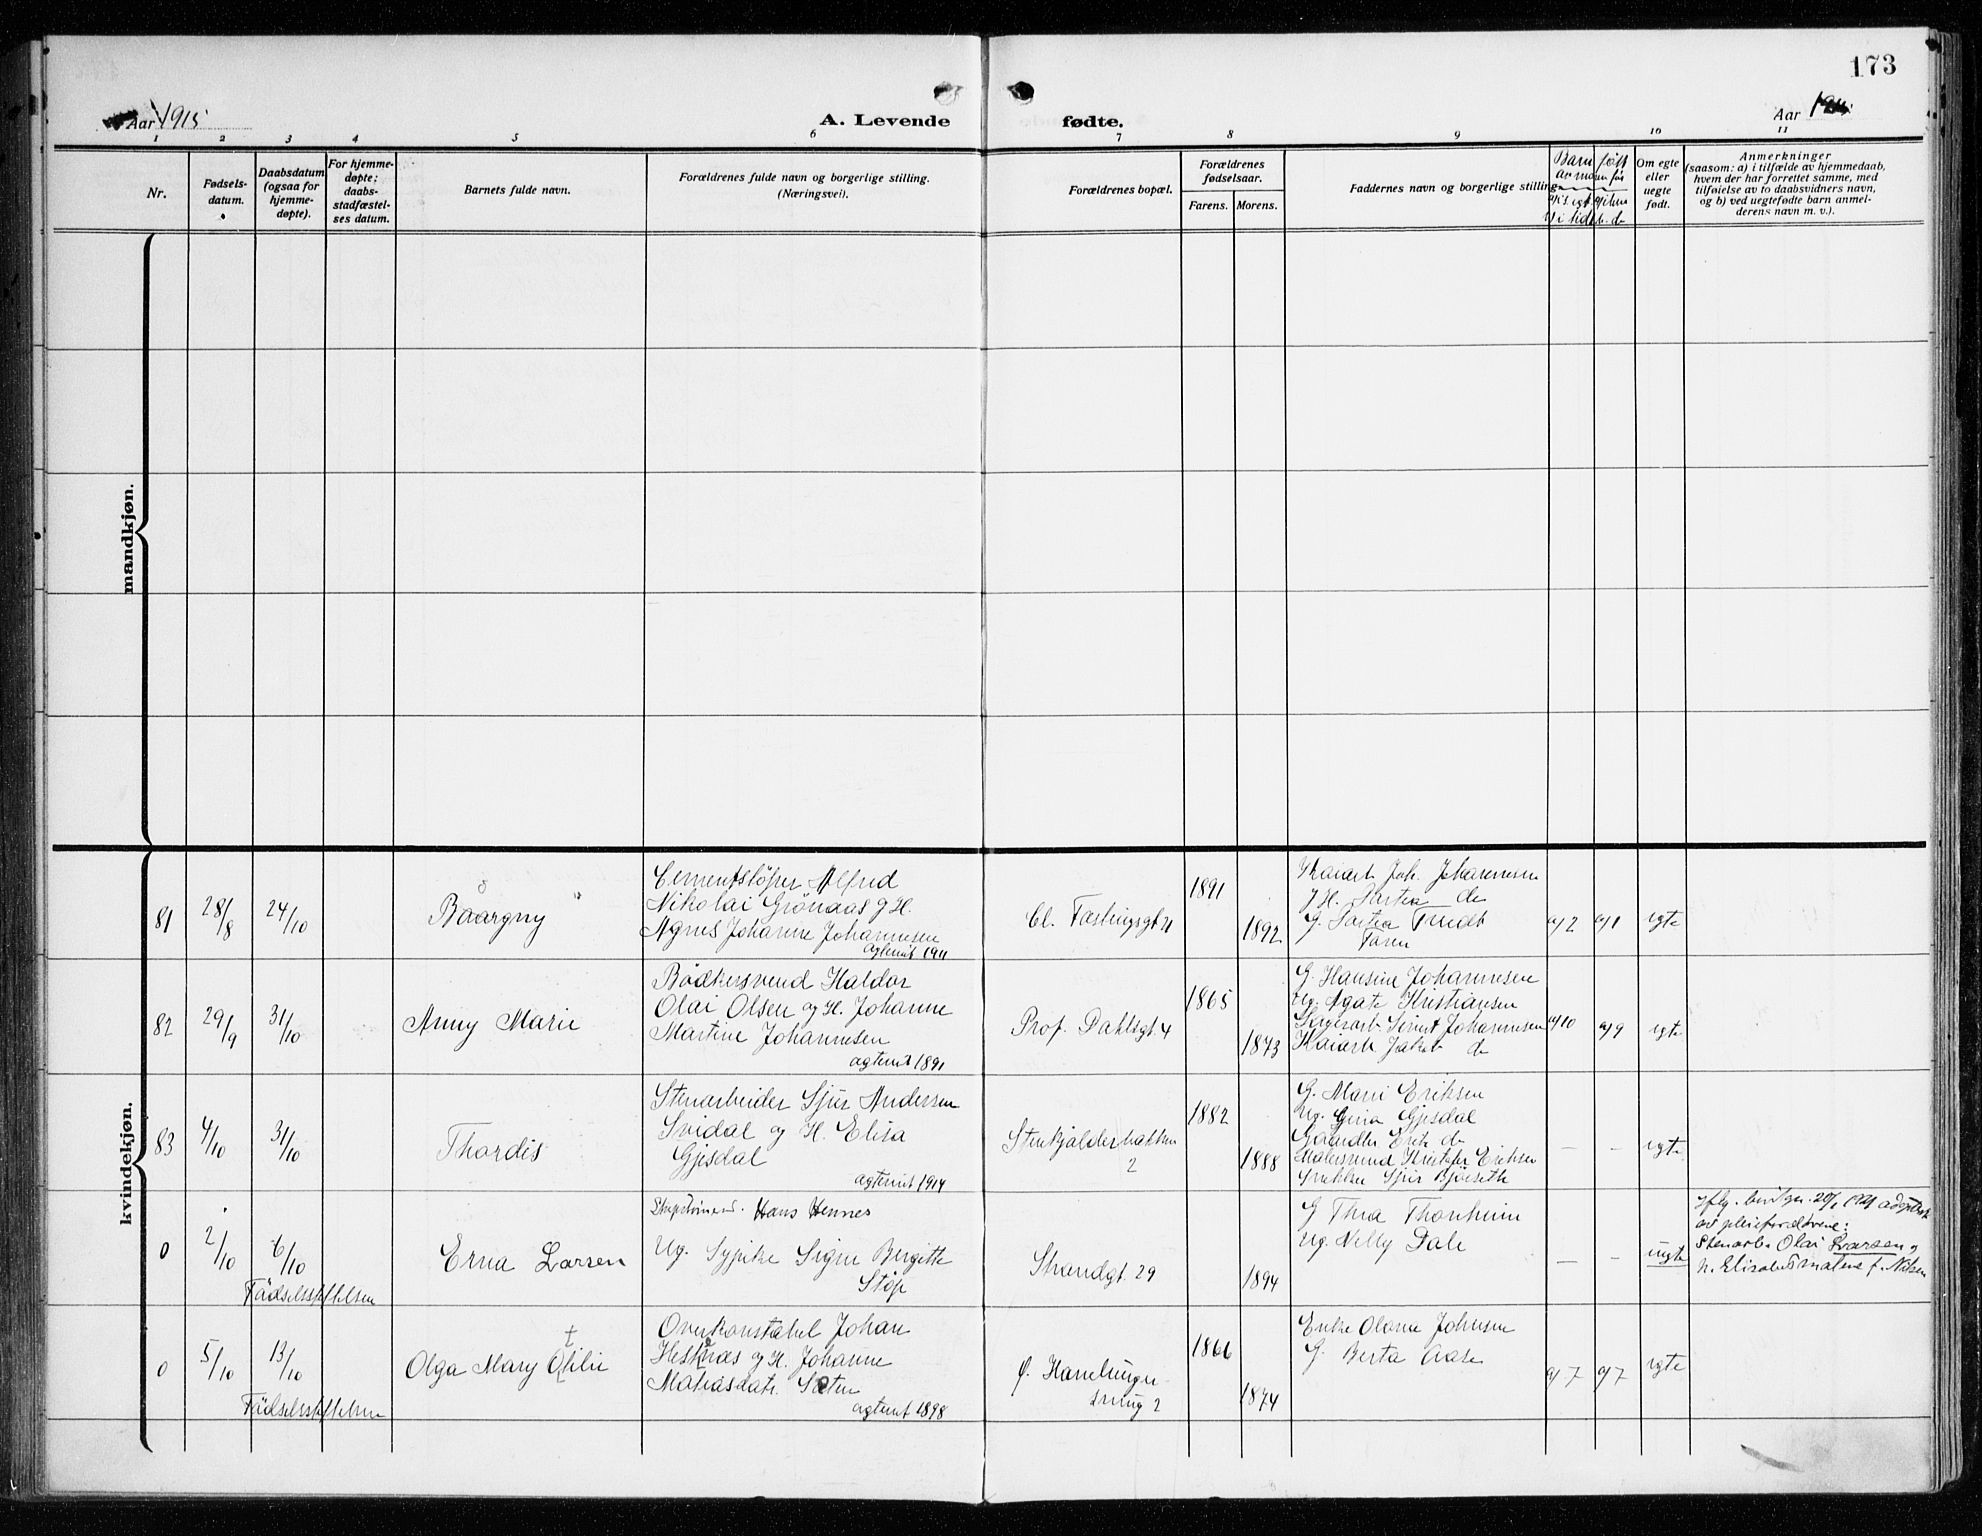 173
Aar 1915
A. Levende
fødte.
Aar
1 2 3 4 5 6 7 8 9 10 11
Nr.
Fødsels-
datum.
Daabsdatum
(ogsaa for
hjemme-
døpte).
For hjemme-
døpte;
daabs-
stadfæstel-
ses datum.
Barnets fulde navn.
Forældrenes fulde navn og borgerlige stilling.
(Næringsvei).
Forældrenes bopæl.
Forældrenes
fødselsaar.
Farens. Morens.
Faddernes navn og borgerlige stilling.
Barn født
Om egte
eller
uegte
født.
Anmerkninger
(saasom: a) i tilfælde av hjemmedaab,
hvem der har forrettet samme, med
tilføielse av to daabsvidners navn,
og b) ved uegtefødte barn anmel-
derens navn m. v.).
mandkjøn.
kvindekjøn.
81
28/8
24/10
Baargny
Cementstøper Alfred
Nikolai Grönaas g H.
Agnes Johanne Johannesen
agteviet 1911
Cl. Fastingsgt
1891
1892
Joh. Johannesen
G. Sartea Tredt
Faren
a/2
a/1
egte
82
29/9
31/10
Anny Marie
Bödkersvend Haldor
Olai Olsen og H. Johanne
Martine Johannesen
agteviet 1891
Prof. Dahlsgt 4
1865
1873
G. Hansine Johannesen
Ug. Agate Kristiansen
Sivert Johannesen
Kaiarb Jakob do
a/10
a/9
egte
83
4/10
31/10
Thordis
Stenarbeider Sjur Andersen
Svidal og H. Elisa
Gjesdal
agteviet 1914
Stenkjelderbakken
2
1882
1888
G. Marie Eriksen
Ug. Gina Gjesdal
Erik do
Malersvend Kristofer Eriksen
Snekker Sjur Bjöiseth
—
—
egte
0
2/10
6/10
Fødselsstiftelsen
Erna Larsen
Hans Hennes
Ug. Sypike Signe Bergitte
Støp
Strandgt. 29
1894
G Thea Thonheim
Ug. Nelly Dale
—
—
uegte
av pleieforældrene:
Stenarb. Olai Larsen og
0
5/10
13/10
Fødselsstiftelsen
Olga Mary Otilie
Overkonstabel Johan
Hesknes og H. Johanne
Matiasdatr. Sæten
agteviet 1898
1866
1874
Enke Olava Johnsen
G. Berta Aase
a/7
a/7
egte